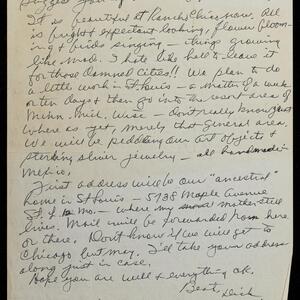 It is beautiful at Rancho Chiconow. All
is bright & expectant looking, flowers bloom-
ing & birds singing — things growing
like mad. I hate like hell to leave it
for those Damned Cities!! We plan to do
a little work in St Louis — a matter of a week
or ten days & then go into the resort area of
Minn. Mich. Wisc — don't really know just
where as yet, merely that general area.
We will be peddling our art objects &
sterling silver jewelry — all handmade in
Mexico.
Just address will be our "ancestral"
home in St Louis — 5738 Maple Avenue
St. L. Mo. — where my mother still
lives. Mail will be forwarded from here
or there. Don't know if we will get to
Chicago but may. I'll take your address
along just in case.
Hope you are well & everything OK.
Best, Dick